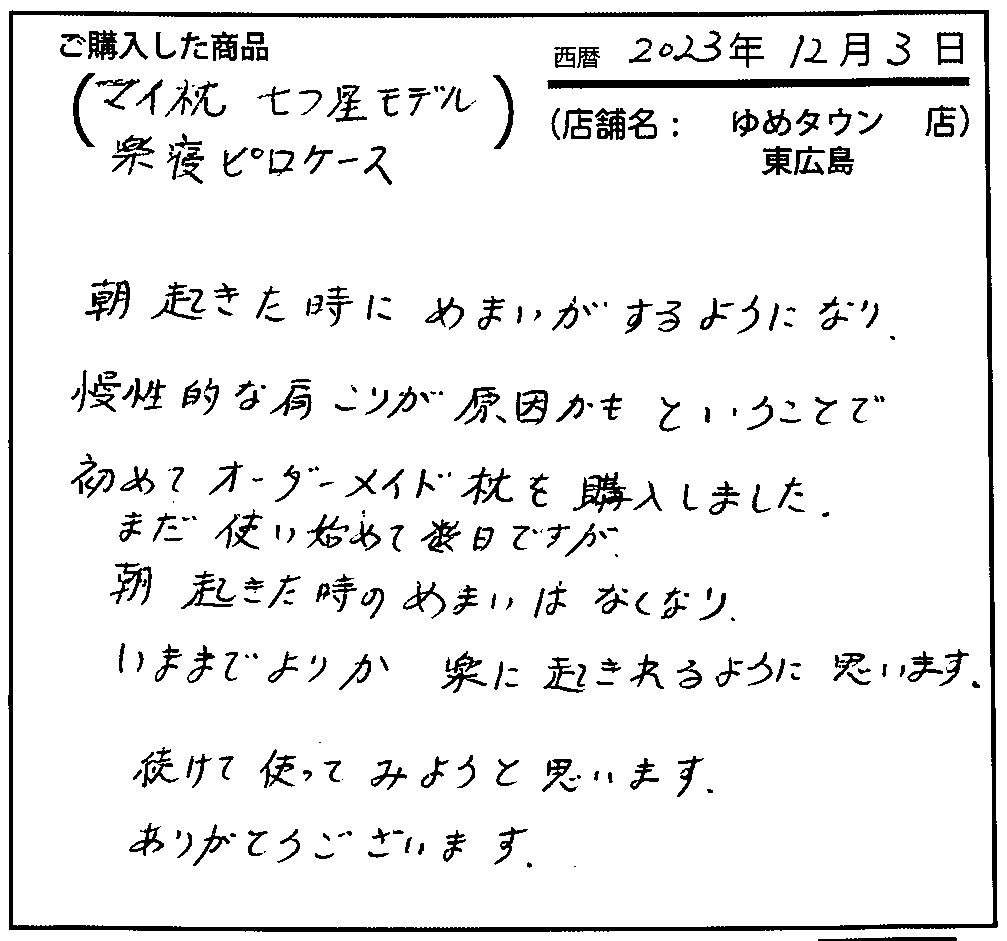 ご購入した商品
西暦 2023年 12月 3日
(マイ枕 七つ星モデル
楽寝ピロケース)
(店舗名： ゆめタウン 店)
東広島
朝 起きた時に めまいが するようになり、
慢性的な肩こりが 原因かも ということで
初めて オーダーメイド枕を 購入しました。
まだ 使い始めて 数日ですが、
朝 起きた時の めまいは なくなり、
いままでよりか 楽に 起きれるように 思います。
続けて 使って みようと 思います。
ありがとうございます。